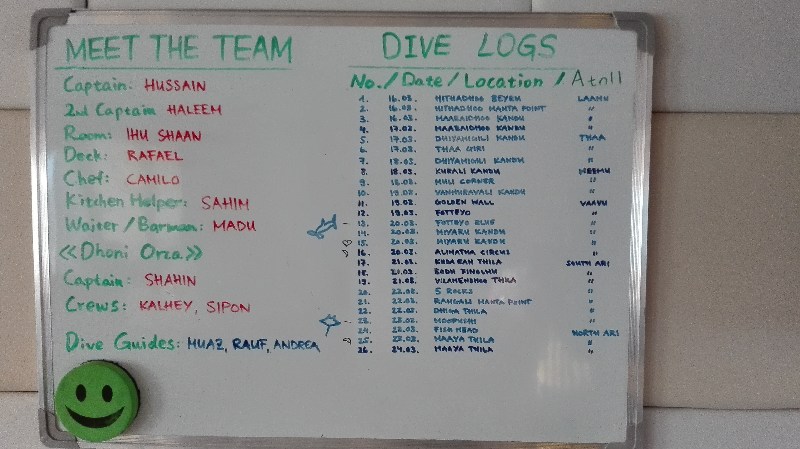 MEET THE TEAM
Captain: HUSSAIN
2nd Captain HALEEM
Room: IHU SHAAN
Deck: RAFAEL
Chef: CAMILO
Kitchen Helper: SAHIM
Waiter/Barman: MADU
«Dhoni Orza»
Captain: SHAHIN
Crews: KALHEY, SIPON
Dive Guides: MUAZ, RAUF, ANDREA
DIVE LOGS
No./Date/Location/Atoll
1. 16.03. HITHADHOO BEYRU LAAMU
2. 16.03. HITHADHOO MANTA POINT "
3. 16.03. MAABAIDHOO KANDU "
4. 17.03. MAABAIDHOO KANDU "
5. 17.03. DHIYAMIGILI KANDU THAA
6. 17.03. THAA GIRI "
7. 18.03. DHIYAMIGILI KANDU "
8. 18.03. KURALI KANDU MEEMU
9. 18.03. MULI CORNER "
10. 19.03. KANDU "
11. 19.03. GOLDEN WALL VAAVU
12. 19.03. FOTTEYO "
13. 20.03. FOTTEYO "
14. 20.03. MIYARU KANDU "
15. 20.03. MIYARU KANDU "
16. 20.03. ALIMATHA CIRCUS "
17. 21.03. KUDARAH THILA SOUTH ARI
18. 21.03. BODU FINOLHU "
19. 21.03. VILAMENDHOO THILA "
20. 22.03. 5 ROCKS "
21. 22.03. RANGALI MANTA POINT "
22. 22.03. THILA "
23. 22.03. "
24. 23.03. FISH HEAD NORTH ARI
25. 23.03. MAAYA THILA "
26. 24.03. MAAYA THILA "